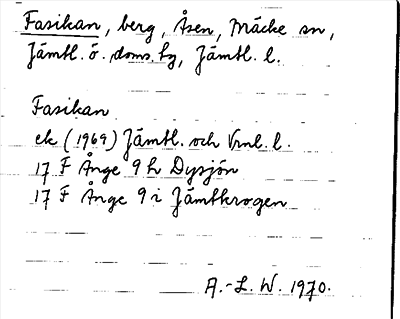 Fasikan, berg, Åsen, Mäcke sn,
Jämtl. ö. doms. hg, Jämtl. l.
Fasikan
ek (1969) Jämtl. och Vrnl. l.
17 F Ånge 9 h Dysjön
17 F Ånge 9 i Jämtkrogen
A.-L. W. 1970.